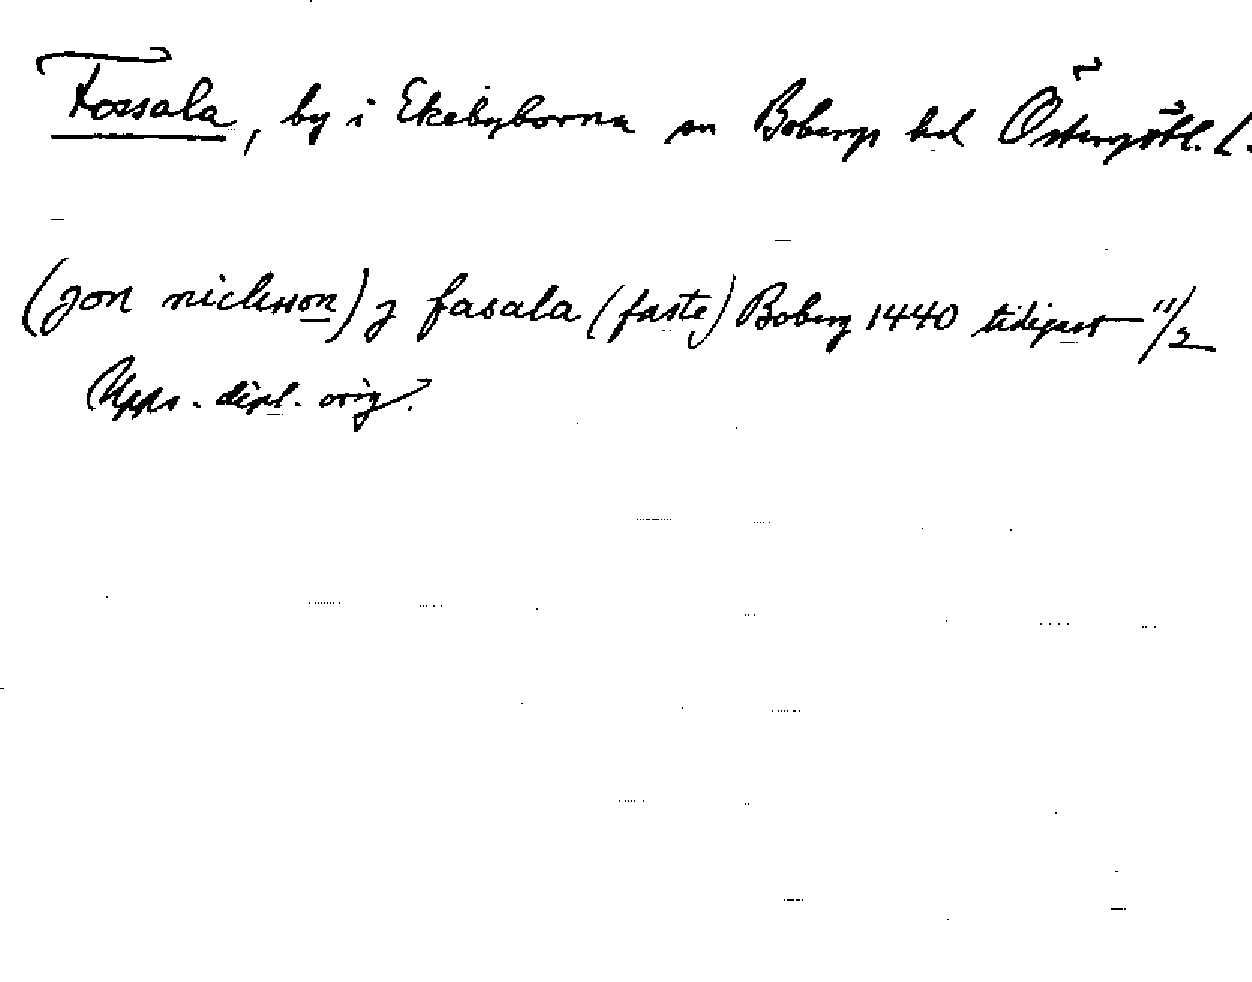 Fossala, by i Ekebyborna sn Bobergs hd Östergötl. l.
(jon niclisson) j fasala (faste) Boberg 1440 tidigast 11/2
Upps. dipl. orig.